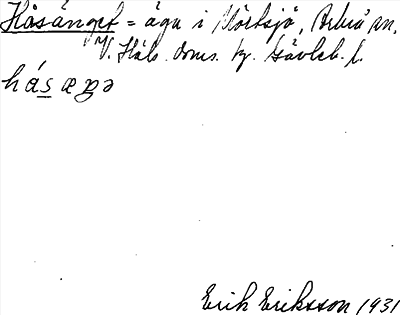 Håsänget = ägu i Mörtsjö, Arbrå sn.
V. Häls. doms. hg. Gävleb. l.
hásæŋə
Erik Eriksson 1931